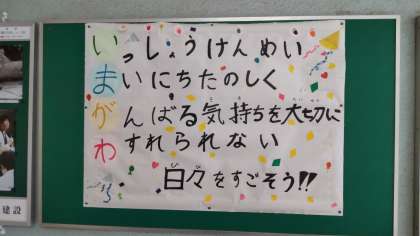 いっしょうけんめい
まいにちたのしく
がんばる気持ちを大切に
わすれられない
日々をすごそう!!
建設